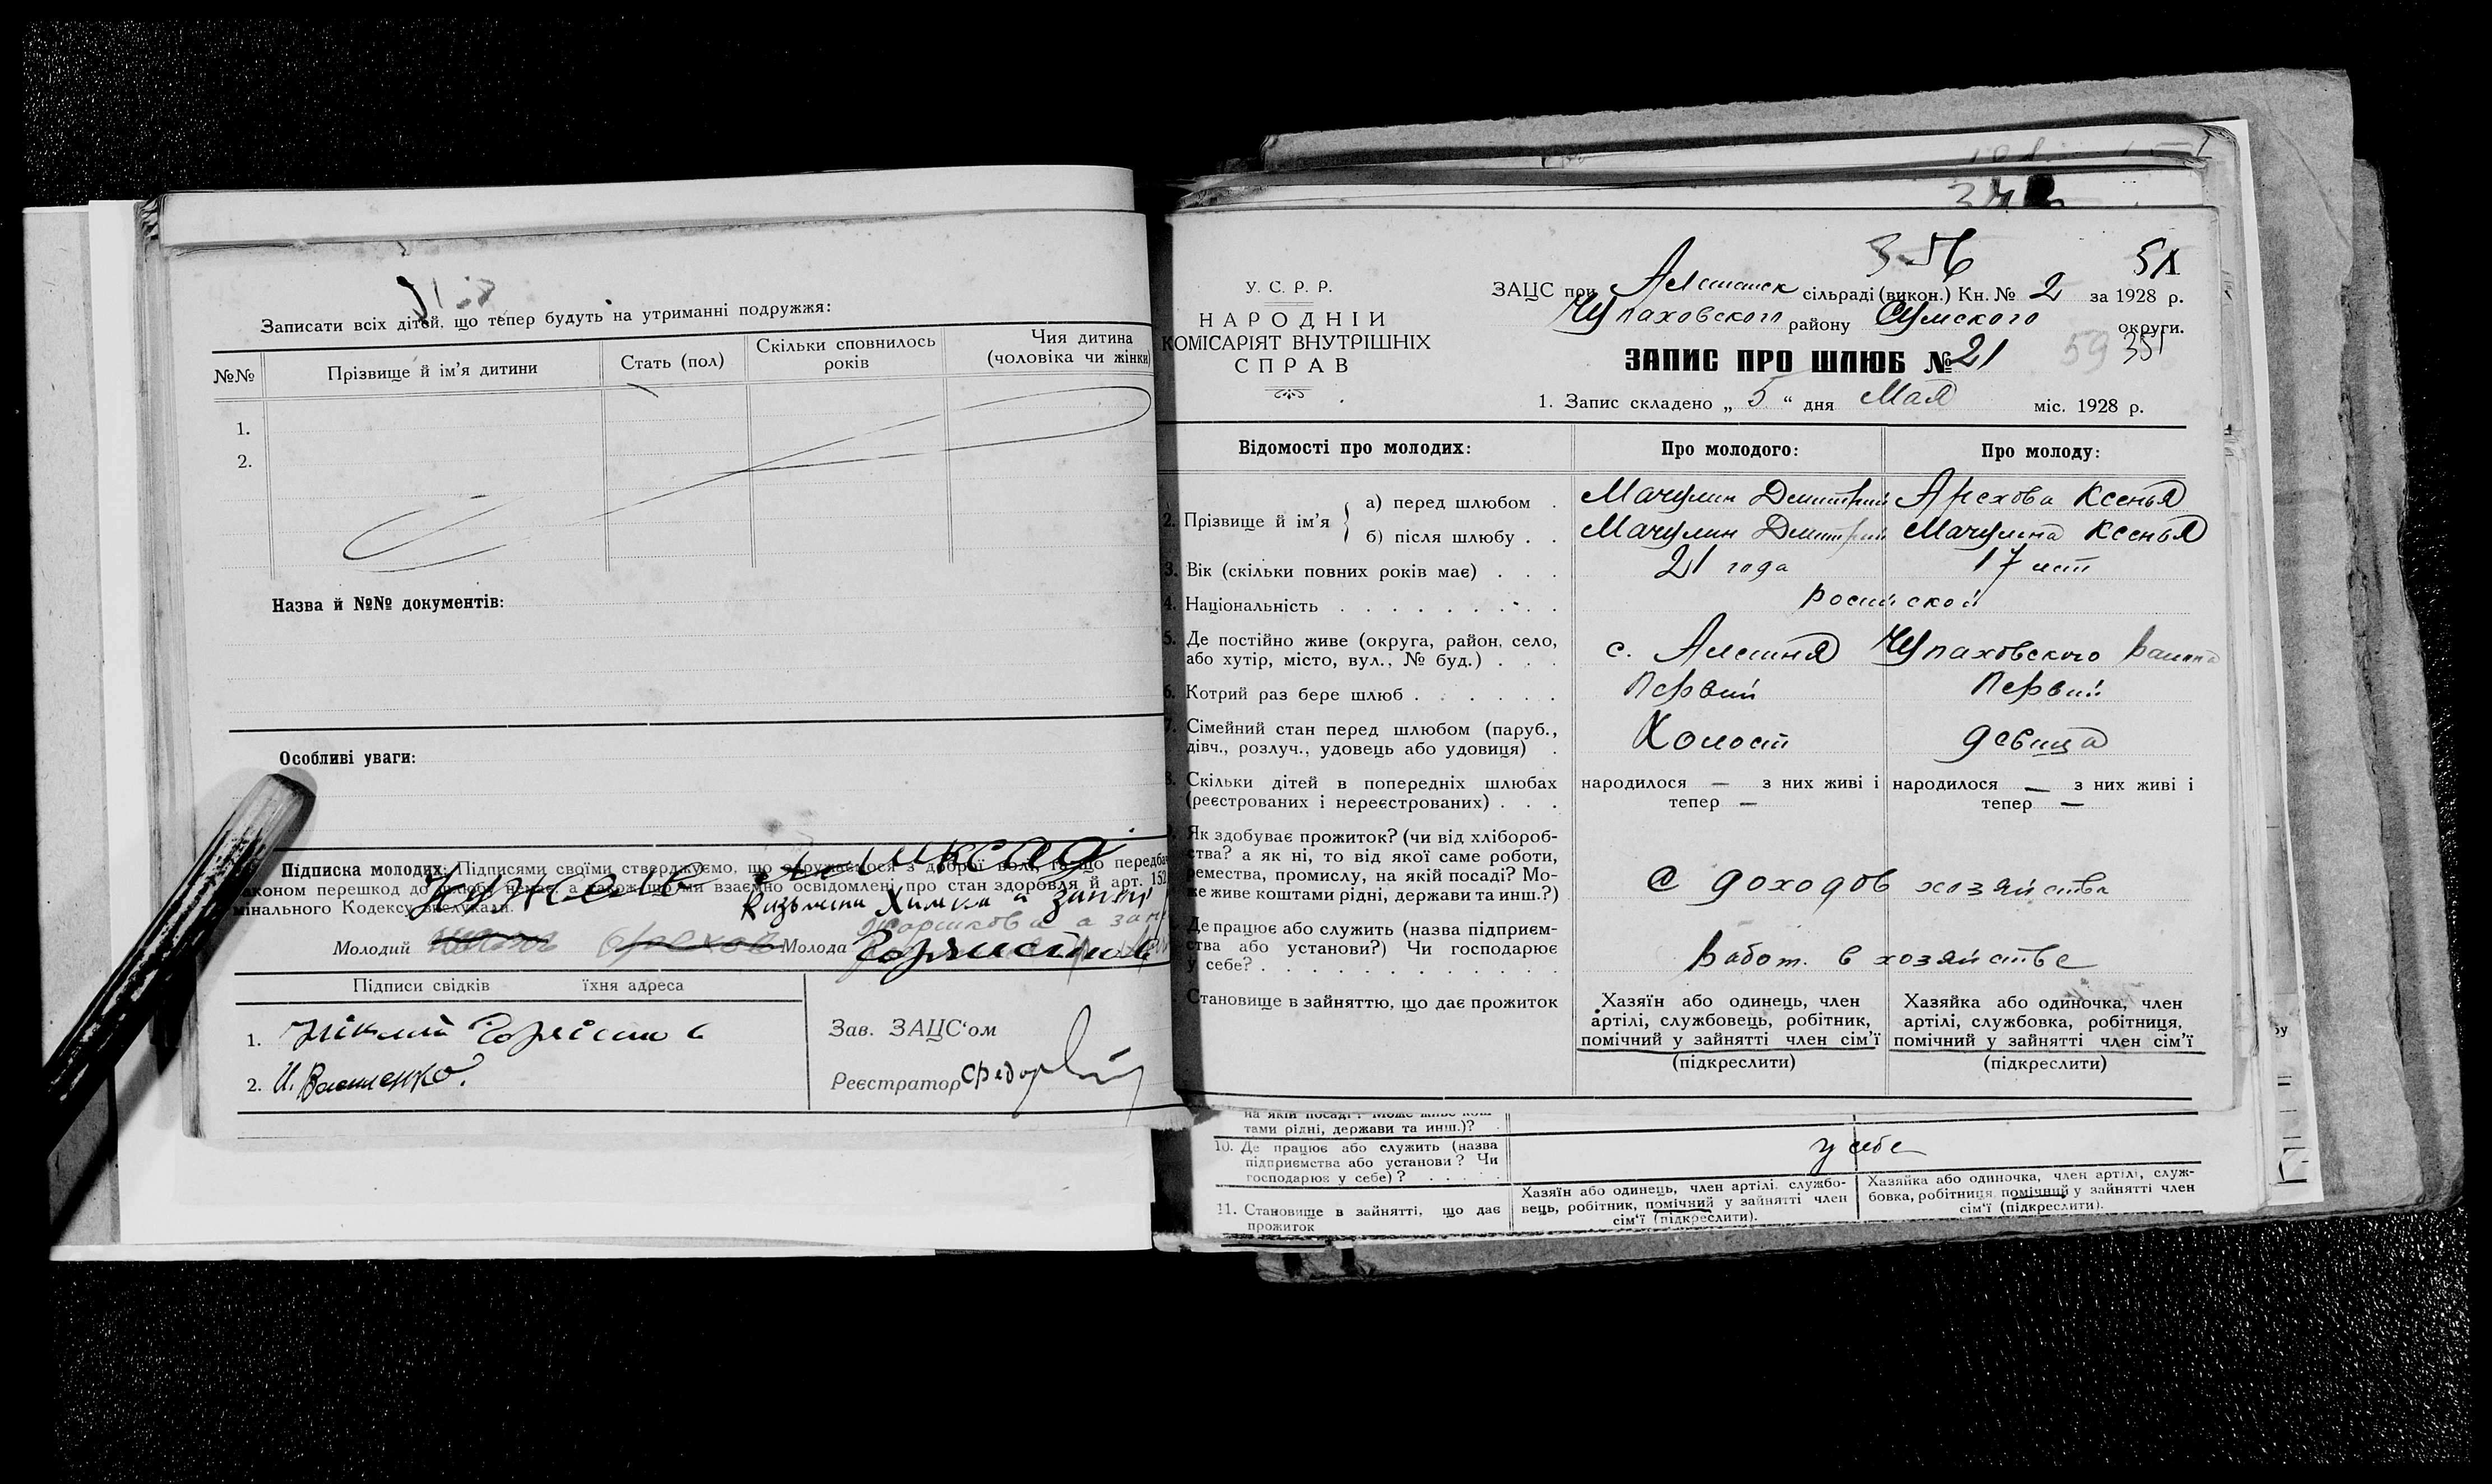 Записати всіх дітей, що тепер будуть на утриманні подружжя:
№№ Прізвище й ім'я дитини Стать (пол) Скільки сповнилось років Чия дитина (чоловіка чи жінки)
1.
2.
Назва й №№ документів:
Особливі уваги:
Підписка молодих: Підписями своїми стверджуємо, що одружаємося з доброї волі, та що передба
законом перешкод до шлюбу немає, а також що ми взаємно освідомлені про стан здоровля й арт. 152
мінального Кодексу вислухали.
Молодий Молода
Підписи свідків їхня адреса
1.
2. И. Василенко.
Зав. ЗАЦС'ом
Реєстратор
У. С. Р. Р.
НАРОДНІЙ
КОМІСАРІЯТ ВНУТРІШНІХ
СПРАВ
51
ЗАЦС при сільраді (викон.) Кн. № 2 за 1928 р.
Чупаховского району Сумского округи.
ЗАПИС ПРО ШЛЮБ № 21 59 351
1. Запис складено „ 5 “ дня Мая міс. 1928 р.
Відомості про молодих: Про молодого: Про молоду:
2. Прізвище й ім'я а) перед шлюбом . Мачулин Дмитрий Арехова Ксенья
б) після шлюбу . . Мачулин Дмитрий Мачулина Ксенья
3. Вік (скільки повних років має) . . . 21 года 17 лет
4. Національність . . . . . . . . . . росийской
5. Де постійно живе (округа, район, село,
або хутір, місто, вул., № буд.) . . . с. Алешня Чупаховского Района
6. Котрий раз бере шлюб . . . . . . Первий Первий
7. Сімейний стан перед шлюбом (паруб.,
дівч., розлуч., удовець або удовиця) . Холост девица
8. Скільки дітей в попередніх шлюбах
(реєстрованих і нереєстрованих) . . .
народилося — з них живі і
тепер —
народилося — з них живі і
тепер —
Як здобуває прожиток? (чи від хлібороб-
ства? а як ні, то від якої саме роботи,
ремества, промислу, на якій посаді? Мо-
же живе коштами рідні, держави та инш.?)
С доходов хозяйства
Де працює або служить (назва підприєм-
ства або установи?) Чи господарює
у себе? . . . . . . . . . . . .
Работ. в хозяйстве
Становище в зайняттю, що дає прожиток
Хазяїн або одинець, член
артілі, службовець, робітник,
помічний у зайнятті член сім'ї
(підкреслити)
Хазяйка або одиночка, член
артілі, службовка, робітниця,
помічний у зайнятті член сім'ї
(підкреслити)
на якій посаді? Може живе кош-
тами рідні, держави та инш.)?
10. Де працює або служить (назва
підприємства або установи? Чи
господарює у себе)? . . . . .
у себе
11. Становище в зайнятті, що дає
прожиток
Хазяїн або одинець, член артілі, службо-
вець, робітник, помічний у зайнятті член
сім'ї (підкреслити).
Хазяйка або одиночка, член артілі, служ-
бовка, робітниця, помічний у зайнятті член
сім'ї (підкреслити).